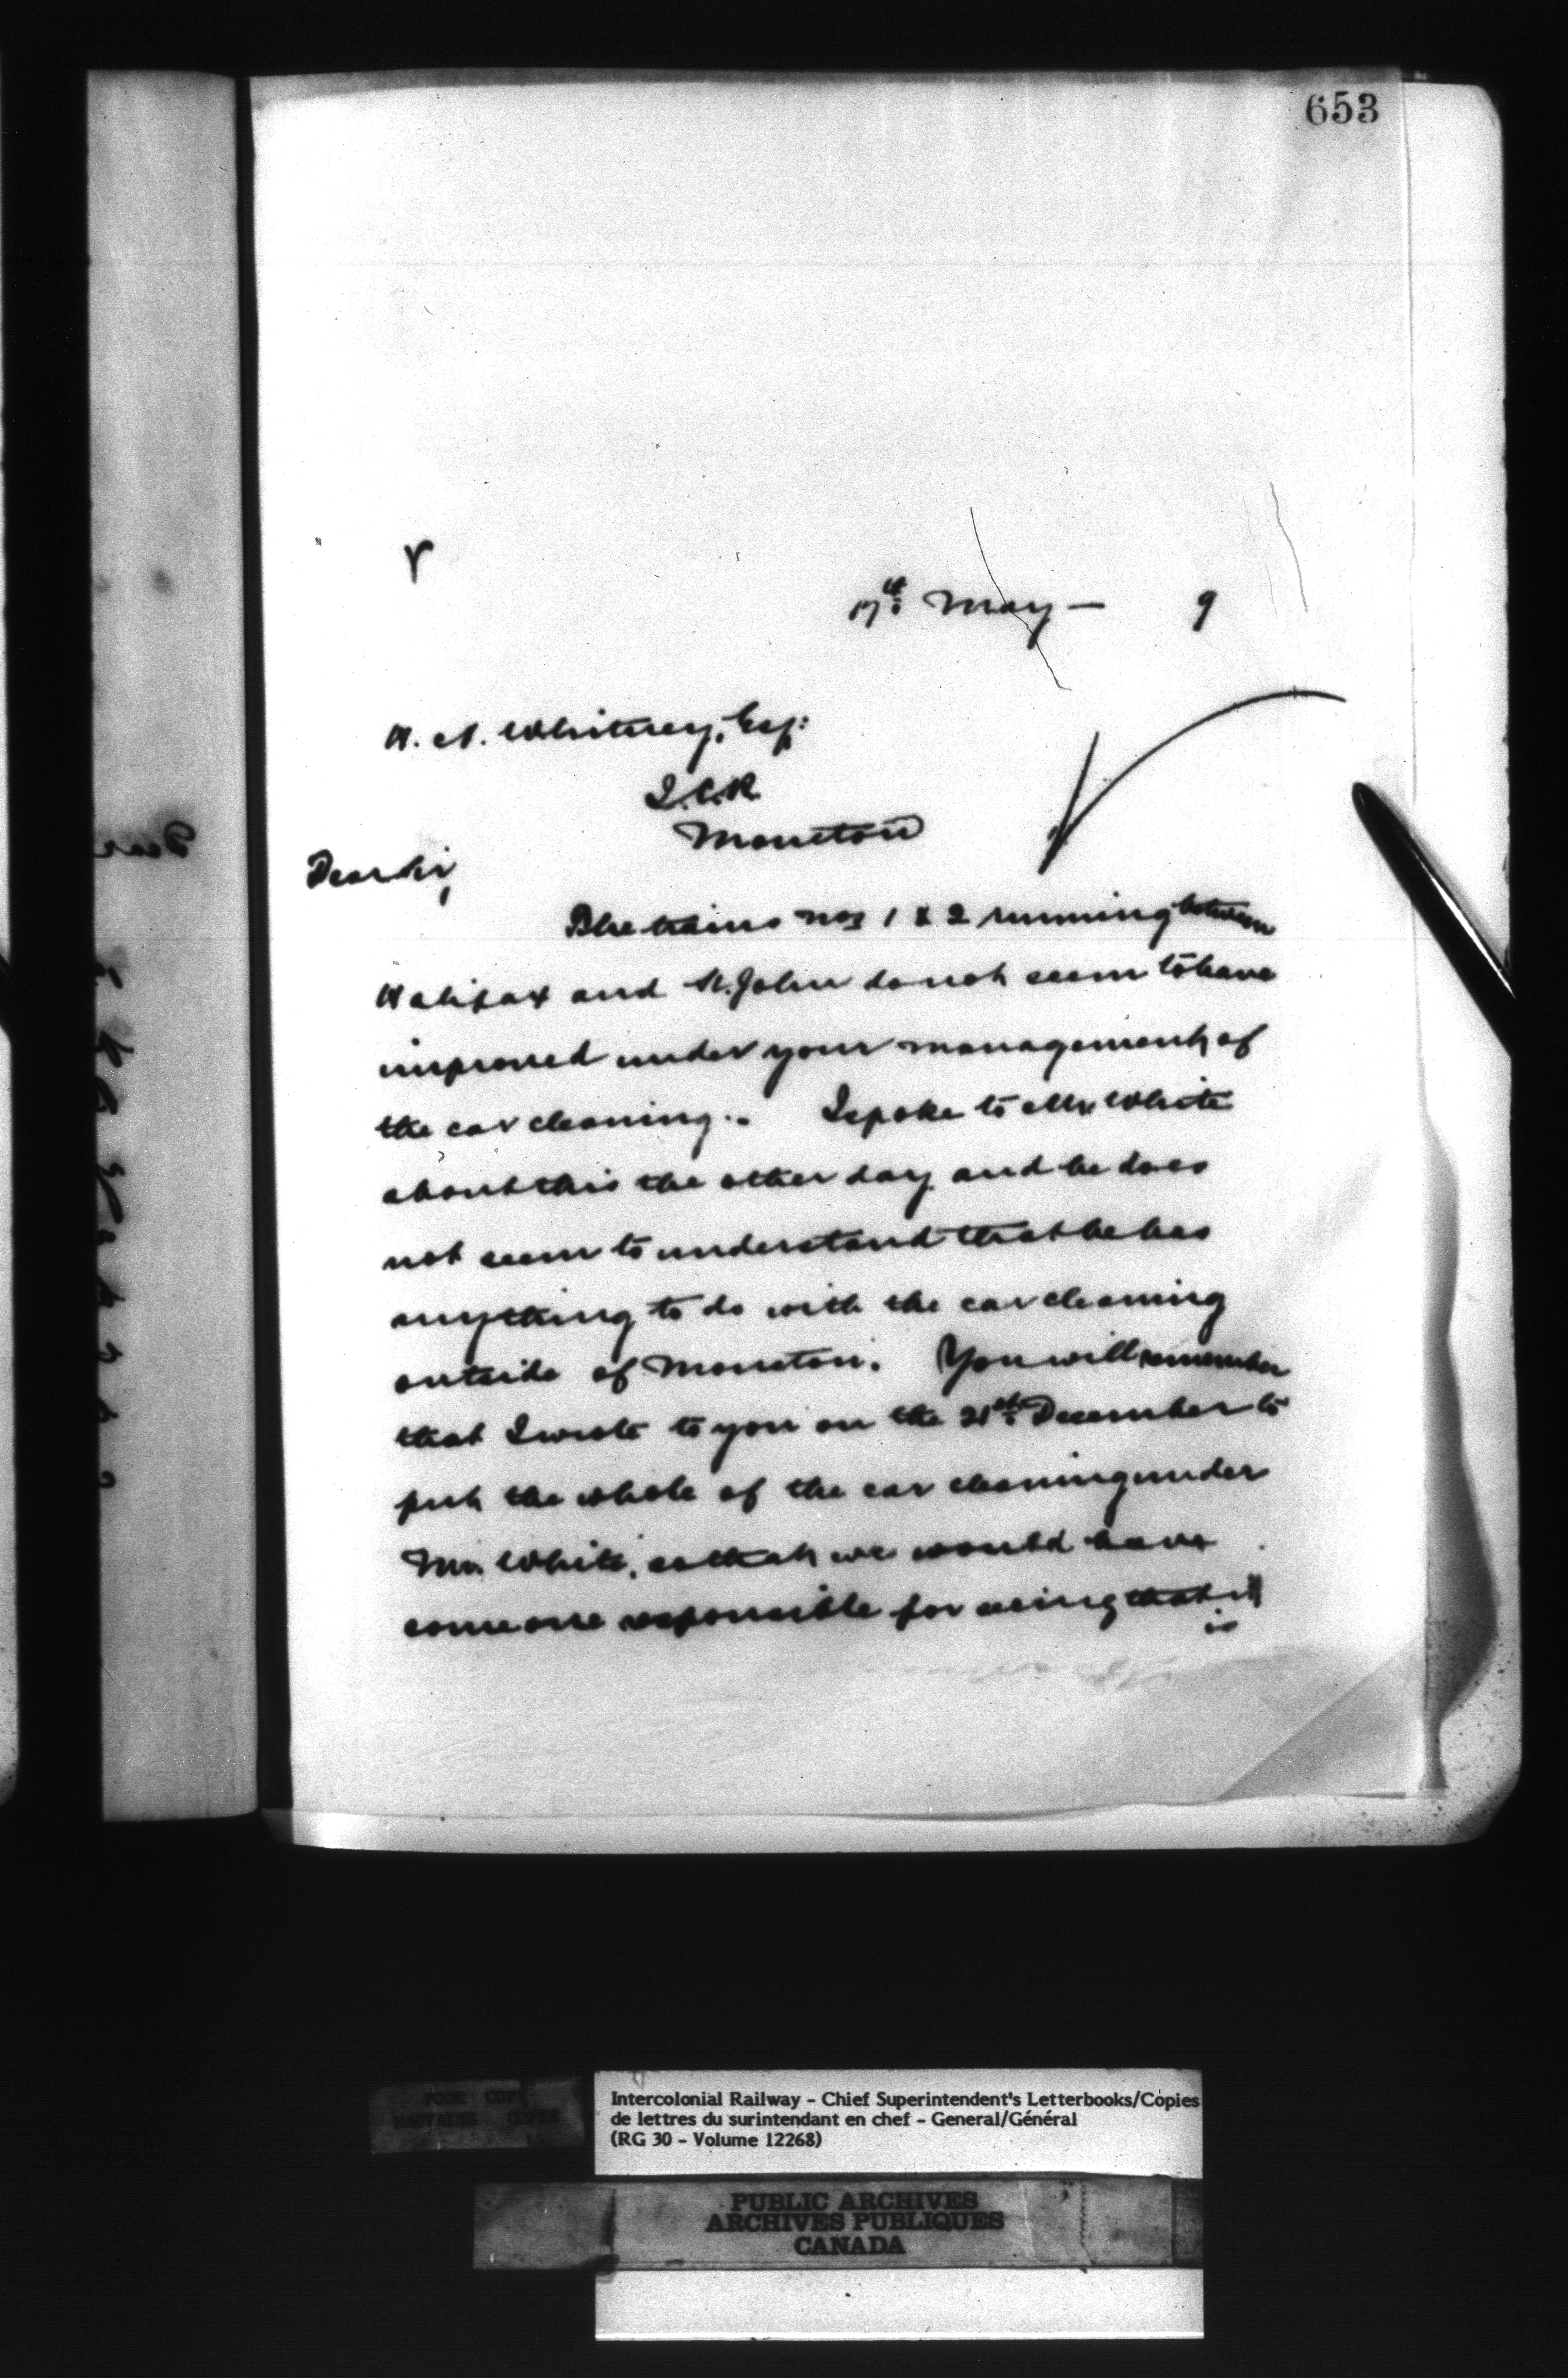 653
17th May — 9
H. A. Whitney, Esq:
I.C.R.
Moncton
Dear Sir,
The trains nos 1 & 2 running between
Halifax and St. John do not seem to have
improved under your management of
the car cleaning. I spoke to Mr. White
about this the other day and he does
not seem to understand that he has
anything to do with the car cleaning
outside of Moncton. You will remember
that I wrote to you on the 21st December to
put the whole of the car cleaning under
Mr. White, so that we would have
some one responsible for seeing that it
is
POOR COPY
MAUVAISE COPIE
Intercolonial Railway - Chief Superintendent's Letterbooks/Copies
de lettres du surintendant en chef - General/Général
(RG 30 - Volume 12268)
PUBLIC ARCHIVES
ARCHIVES PUBLIQUES
CANADA